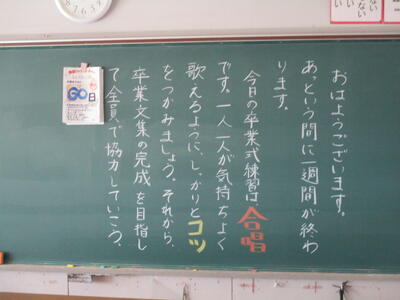 おはようございます。
あっという間に一週間が終わ
ります。
今日の卒業式練習は、合唱
です。一人一人が気持ちよく
歌えるように、しっかりとコツ
をつかみましょう。それから、
卒業文集の完成を目指し
て全員で協力していこう。
60日